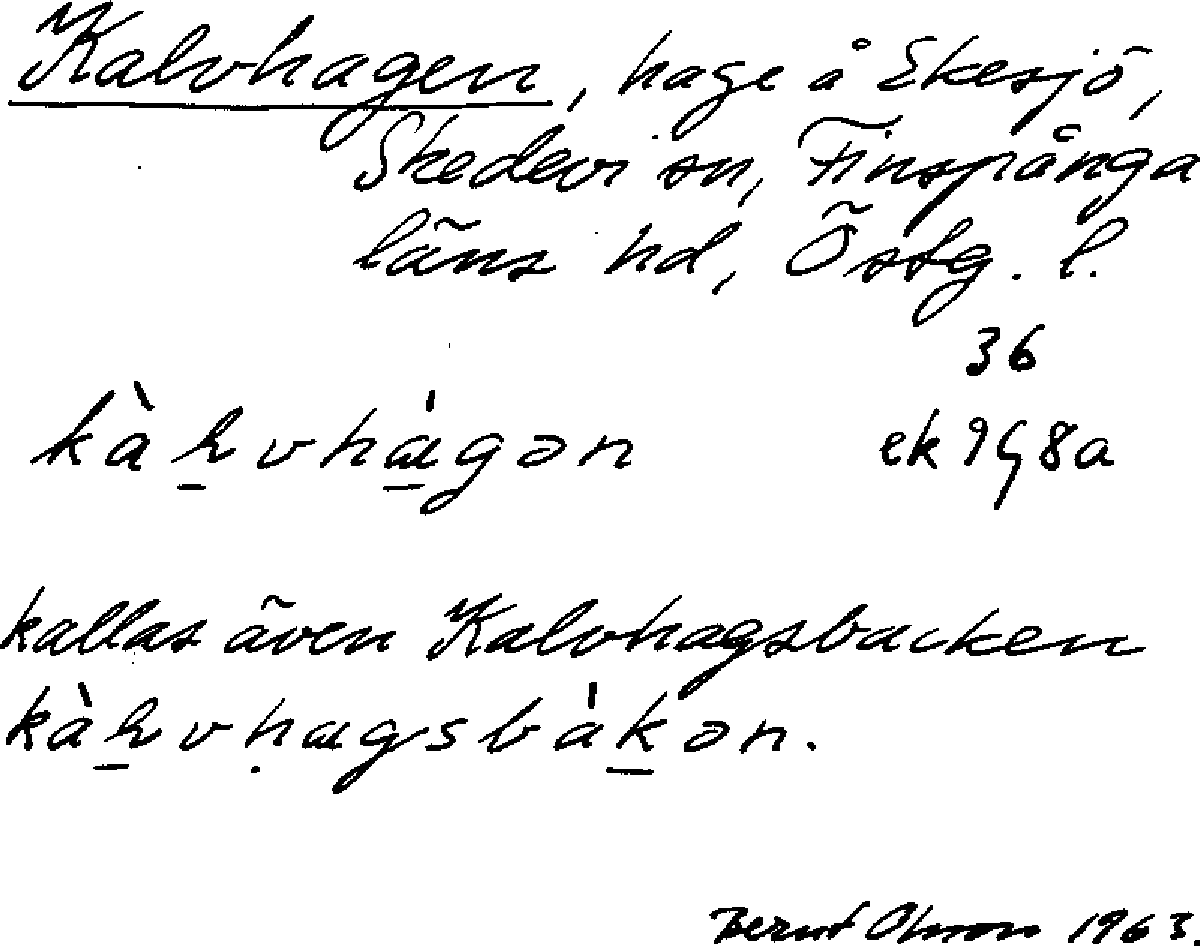 Kalvhagen, hage å Ekesjö,
Skedevi sn, Finspånga
läns hd, Östg. l.
36
ek 9G 8a
kallas även Kalvhagsbacken
Bernt Olsson 1963.